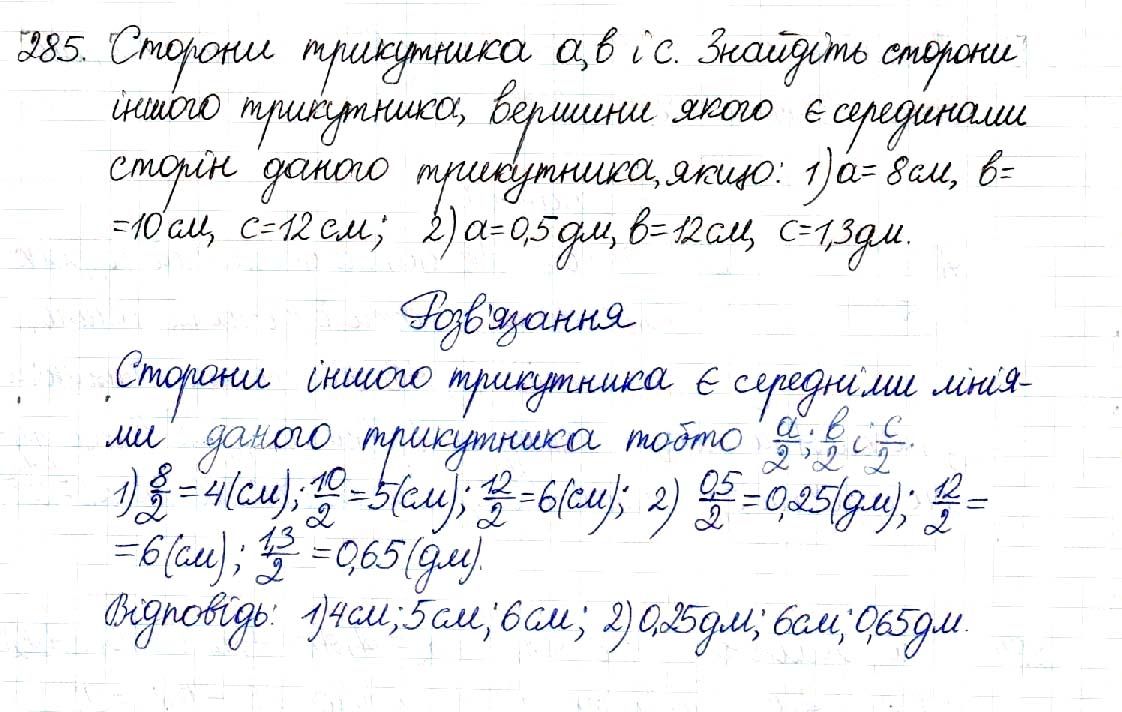 285. Сторони трикутника a, b і c. Знайдіть сторони
іншого трикутника, вершини якого є серединами
сторін даного трикутника, якщо: 1) a = 8 см, b =
= 10 см, c = 12 см; 2) a = 0,5 дм, b = 12 см, c = 1,3 дм.
Розв'язання
Сторони іншого трикутника є середніми лінія-
ми даного трикутника тобто a/2; b/2 і c/2.
1) 8/2 = 4 (см); 10/2 = 5 (см); 12/2 = 6 (см); 2) 0,5/2 = 0,25 (дм); 12/2 =
= 6 (см); 1,3/2 = 0,65 (дм).
Відповідь: 1) 4 см; 5 см; 6 см; 2) 0,25 дм; 6 см; 0,65 дм.